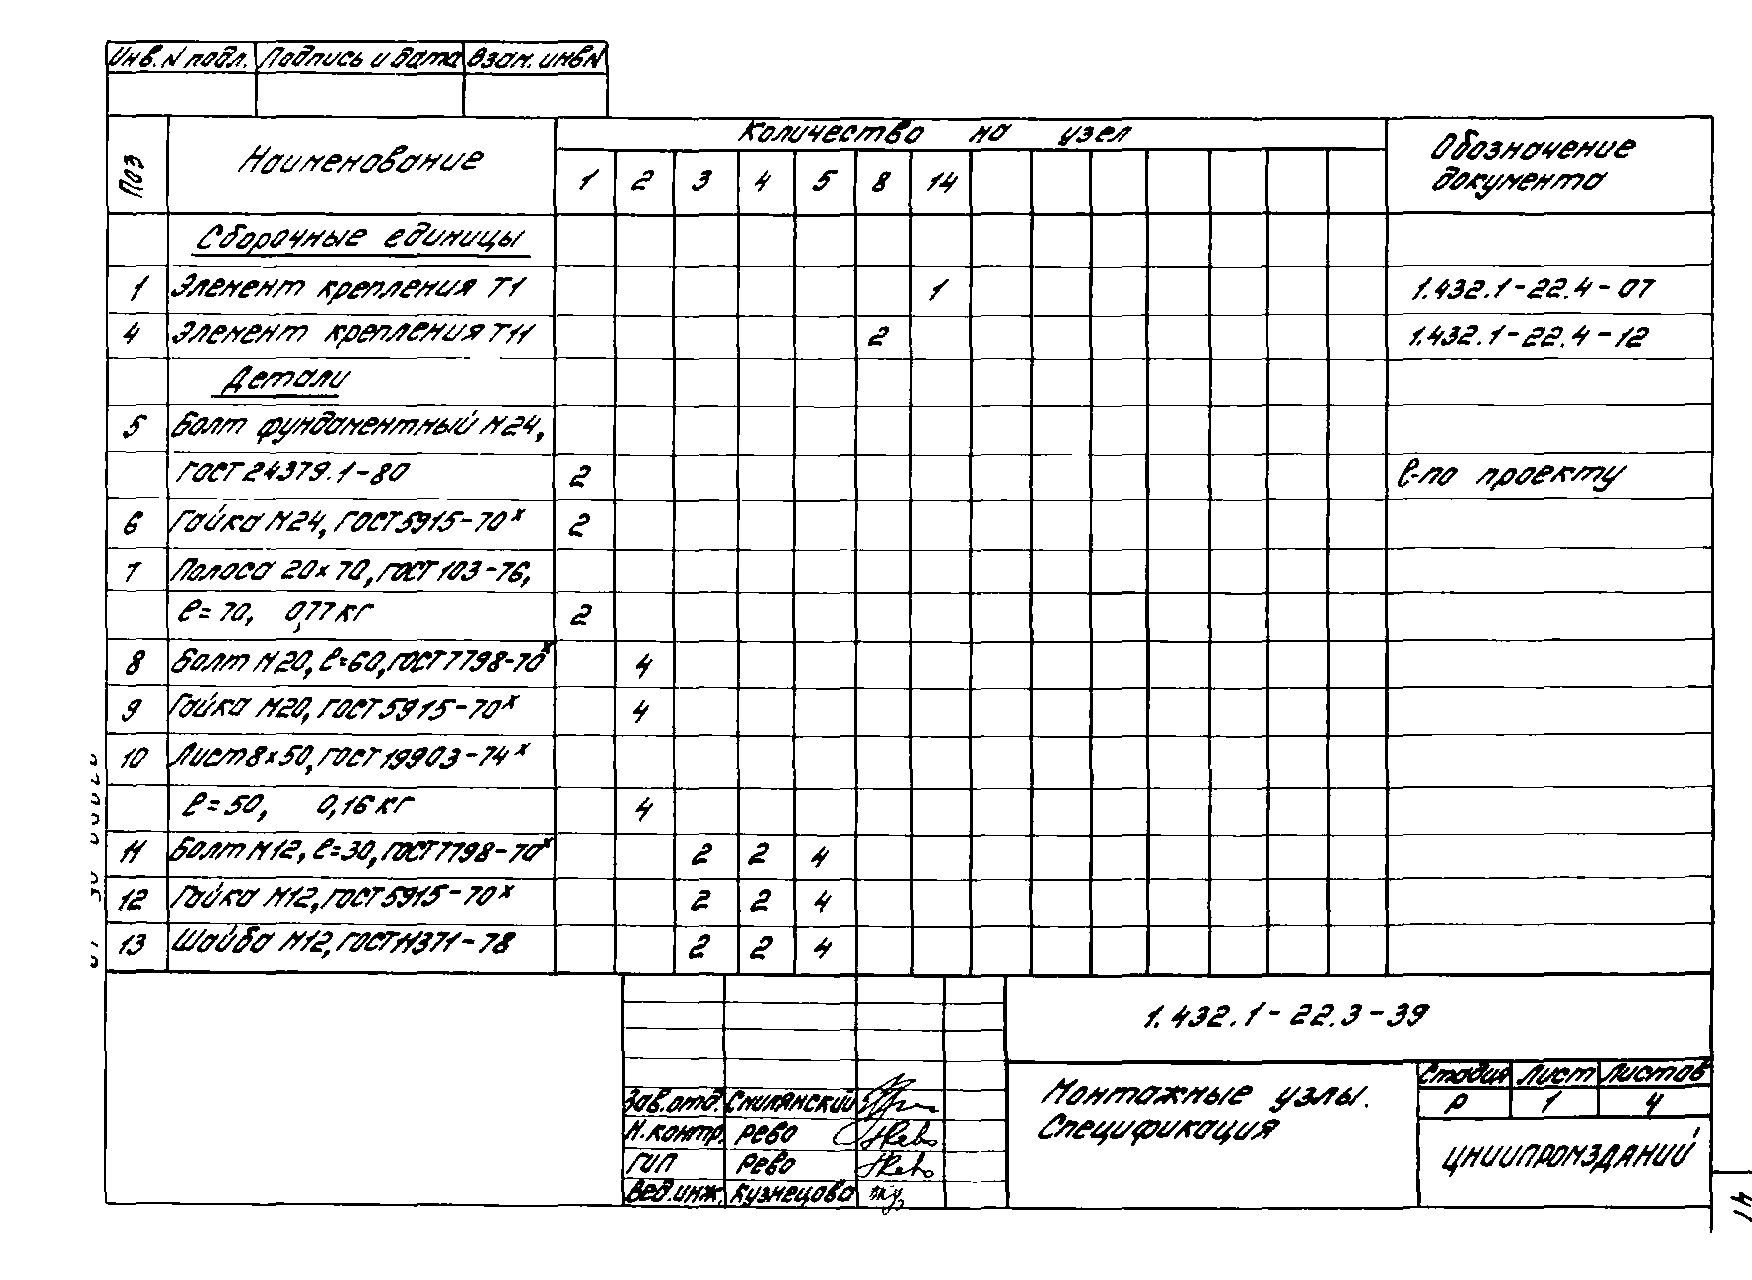 Инв. N подл. Подпись и дата Взам. инв N
Поз Наименование Количество на узел Обозначение документа
1 2 3 4 5 8 14
Сборочные единицы
1 Элемент крепления Т1 1 1.432.1-22.4-07
4 Элемент крепления Т11 2 1.432.1-22.4-12
Детали
5 Болт фундаментный М24,
ГОСТ 24379.1-80 2 ℓ-по проекту
6 Гайка М24, ГОСТ 5915-70ˣ 2
7 Полоса 20х70, ГОСТ 103-76,
ℓ=70, 0,77 кг 2
8 Болт М20, ℓ=60, ГОСТ 7798-70ˣ 4
9 Гайка М20, ГОСТ 5915-70ˣ 4
10 Лист 8х50, ГОСТ 19903-74ˣ
ℓ=50, 0,16 кг 4
11 Болт М12, ℓ=30, ГОСТ 7798-70ˣ 2 2 4
12 Гайка М12, ГОСТ 5915-70ˣ 2 2 4
13 Шайба М12, ГОСТ 11371-78 2 2 4
1.432.1-22.3-39
Зав. отд. Смилянский
Н. контр. Рево
ГИП Рево
Вед. инж. Кузнецова
Монтажные узлы.
Спецификация
Стадия Лист Листов
Р 1 4
ЦНИИПРОМЗДАНИЙ
41